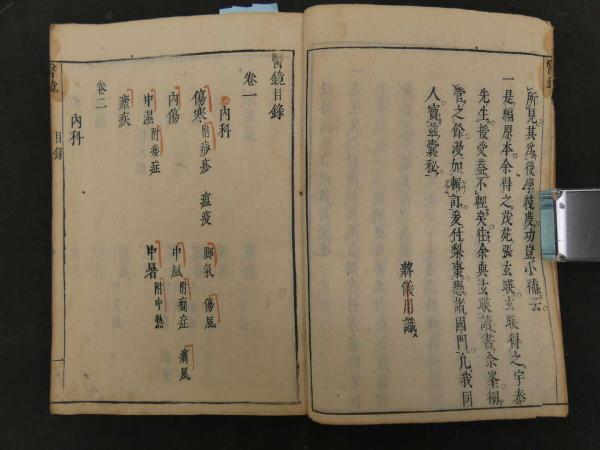 所見其爲後學後度功豈小補云
一是編原本余得之茂苑張玄暎玄暎得之宇泰
先生授受蓋不輕矣往余與玄暎讀書余峯搦
管之餘漫加輯訂爰付梨棗懸諸國門凡我同
人寶茲囊秘
蔣儀用識
醫鏡目錄
卷一
內科
傷寒 附痧疹 瘟疫 脚氣 傷風
內傷 中風 附癇症 癘風
中濕 附痿症 中暑 附中熱
瘧疾
卷二
內科
醫鏡 目錄 一